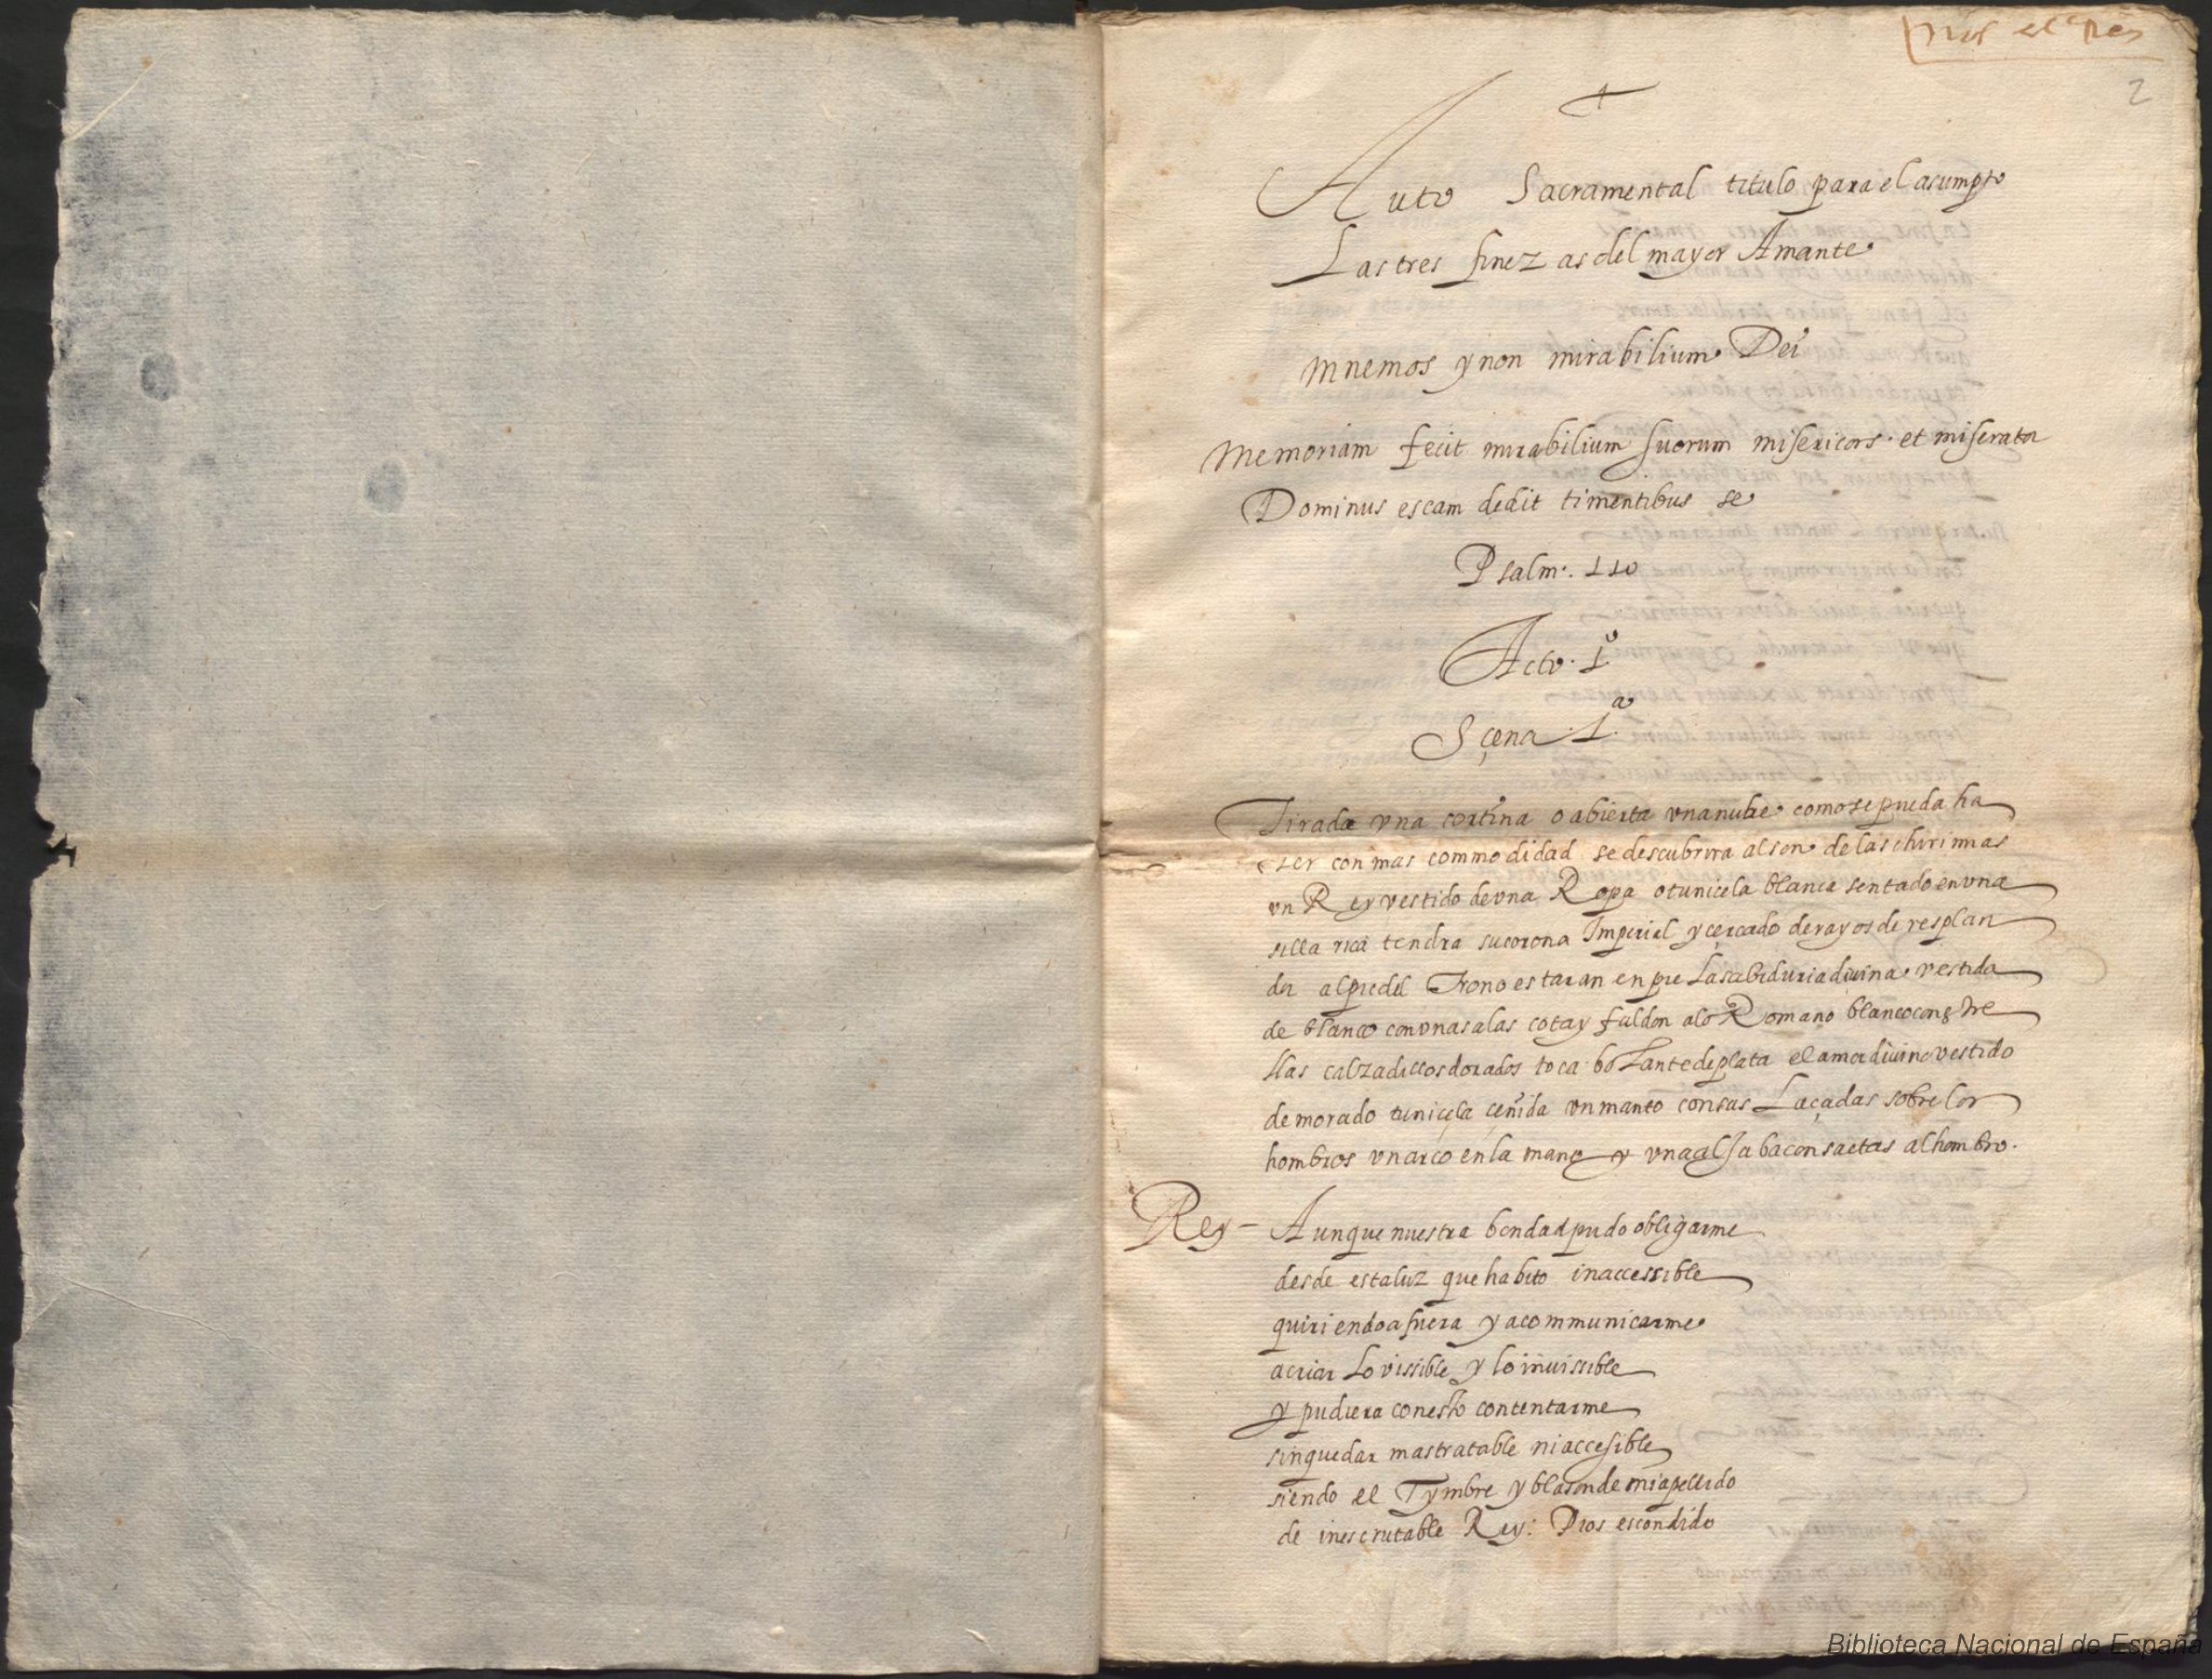 2
Auto Sacramental titulo para el asumpto
Las tres finezas del mayor Amante
Mnemosynon mirabilium Dei
Memoriam fecit mirabilium suorum misericors et miserator
Dominus escam dedit timentibus se
Psalm. 110
Acto. 1º
Sçena .1.ª
Tirada una cortina o abierta vna nube como se pueda ha
ser con mas commodidad se descubrira al son de las chirimias
vn Rey vestido de vna Ropa o tunicela blanca sentado en vna
silla rica tendra su corona Imperial y çercado de rayos de resplan
dor al pie del Trono estaran en pie La sabiduria diuina vestida
de blanco con vnas alas cota y faldon a lo Romano blanco con estre
llas calzadillos dorados toca bolante de plata el amor diuino vestido
de morado tuniçela çeñida vn manto con sas Laçadas sobre los
hombros vn arco en la mano y vna aljaba con saetas al hombro.
Rey - Aunque nuestra bondad pudo obligarme
desde esta luz que habito inaccessible
quiriendo afuera ya communicarme
a criar Lo vissible y lo inuissible
y pudiera con esto contentarme
sin quedar mas tratable ni accesible
siendo el Tymbre y blason de mi apellido
de inescrutable Rey: Dios escondido
Biblioteca Nacional de España